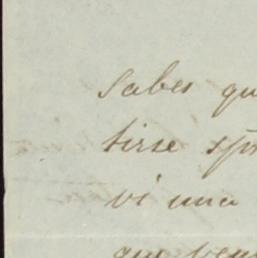 Sabes qu
tirse
vi una
que